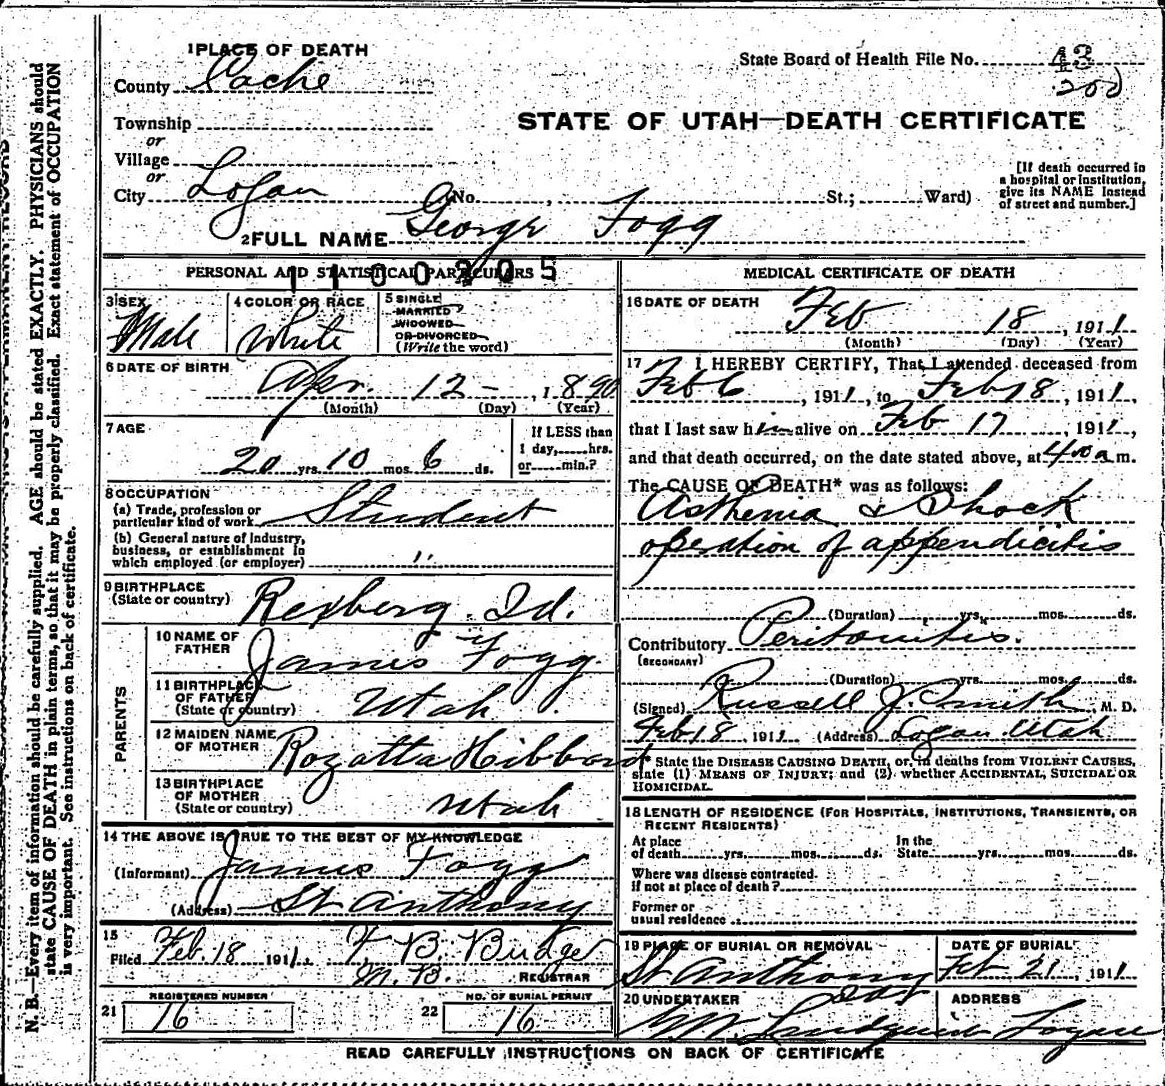 1 PLACE OF DEATH
County Cache
State Board of Health File No. 43
200
STATE OF UTAH—DEATH CERTIFICATE
Township
or
Village
or
City Logan (No. , St.; Ward)
[If death occurred in
a hospital or institution,
give its NAME instead
of street and number.]
2 FULL NAME George Fogg
PERSONAL AND STATISTICAL PARTICULARS
1100205
3 SEX
Male
4 COLOR OR RACE
White
5 SINGLE
MARRIED
WIDOWED
OR DIVORCED
(Write the word)
6 DATE OF BIRTH
Apr. 12 - , 1890
(Month) (Day) (Year)
7 AGE
20 yrs. 10 mos. 6 ds.
If LESS than
1 day, hrs.
or min.?
8 OCCUPATION
(a) Trade, profession or
particular kind of work Student
(b) General nature of industry,
business, or establishment in
which employed (or employer) "
9 BIRTHPLACE
(State or country) Rexberg. Id.
PARENTS
10 NAME OF
FATHER James Fogg.
11 BIRTHPLACE
OF FATHER
(State or country) Utah
12 MAIDEN NAME
OF MOTHER Rozatta Hibbard
13 BIRTHPLACE
OF MOTHER
(State or country) Utah
14 THE ABOVE IS TRUE TO THE BEST OF MY KNOWLEDGE
(Informant) James Fogg
(Address) St Anthony
15
Filed Feb. 18 1911. B. Budge
REGISTRAR
REGISTERED NUMBER
21 16
NO. OF BURIAL PERMIT
22 16
MEDICAL CERTIFICATE OF DEATH
16 DATE OF DEATH
Feb 18, 1911
(Month) (Day) (Year)
17 I HEREBY CERTIFY, That I attended deceased from
Feb 6, 1911, to Feb 18, 1911,
that I last saw him alive on Feb 17, 1911,
and that death occurred, on the date stated above, at 4 00 a m.
The CAUSE OF DEATH* was as follows:
Asthenia & Shock
operation of appendicitis
(Duration) yrs. mos. ds.
Contributory Peritonitis.
(SECONDARY)
(Duration) yrs. mos. ds.
(Signed) Russell J. Smith, M. D.
Feb 18, 1911. (Address) Logan Utah
* State the DISEASE CAUSING DEATH, or, in deaths from VIOLENT CAUSES,
state (1) MEANS OF INJURY; and (2) whether ACCIDENTAL, SUICIDAL OR
HOMICIDAL.
18 LENGTH OF RESIDENCE (FOR HOSPITALS, INSTITUTIONS, TRANSIENTS, OR
RECENT RESIDENTS)
At place
of death yrs. mos. ds.
In the
State yrs. mos. ds.
Where was disease contracted.
If not at place of death?
Former or
usual residence
19 PLACE OF BURIAL OR REMOVAL
St Anthony
DATE OF BURIAL
Feb 21, 1911
20 UNDERTAKER
ADDRESS
Logan
READ CAREFULLY INSTRUCTIONS ON BACK OF CERTIFICATE
N. B.—Every item of information should be carefully supplied. AGE should be stated EXACTLY. PHYSICIANS should
state CAUSE OF DEATH in plain terms, so that it may be properly classified. Exact statement of OCCUPATION
is very important. See instructions on back of certificate.